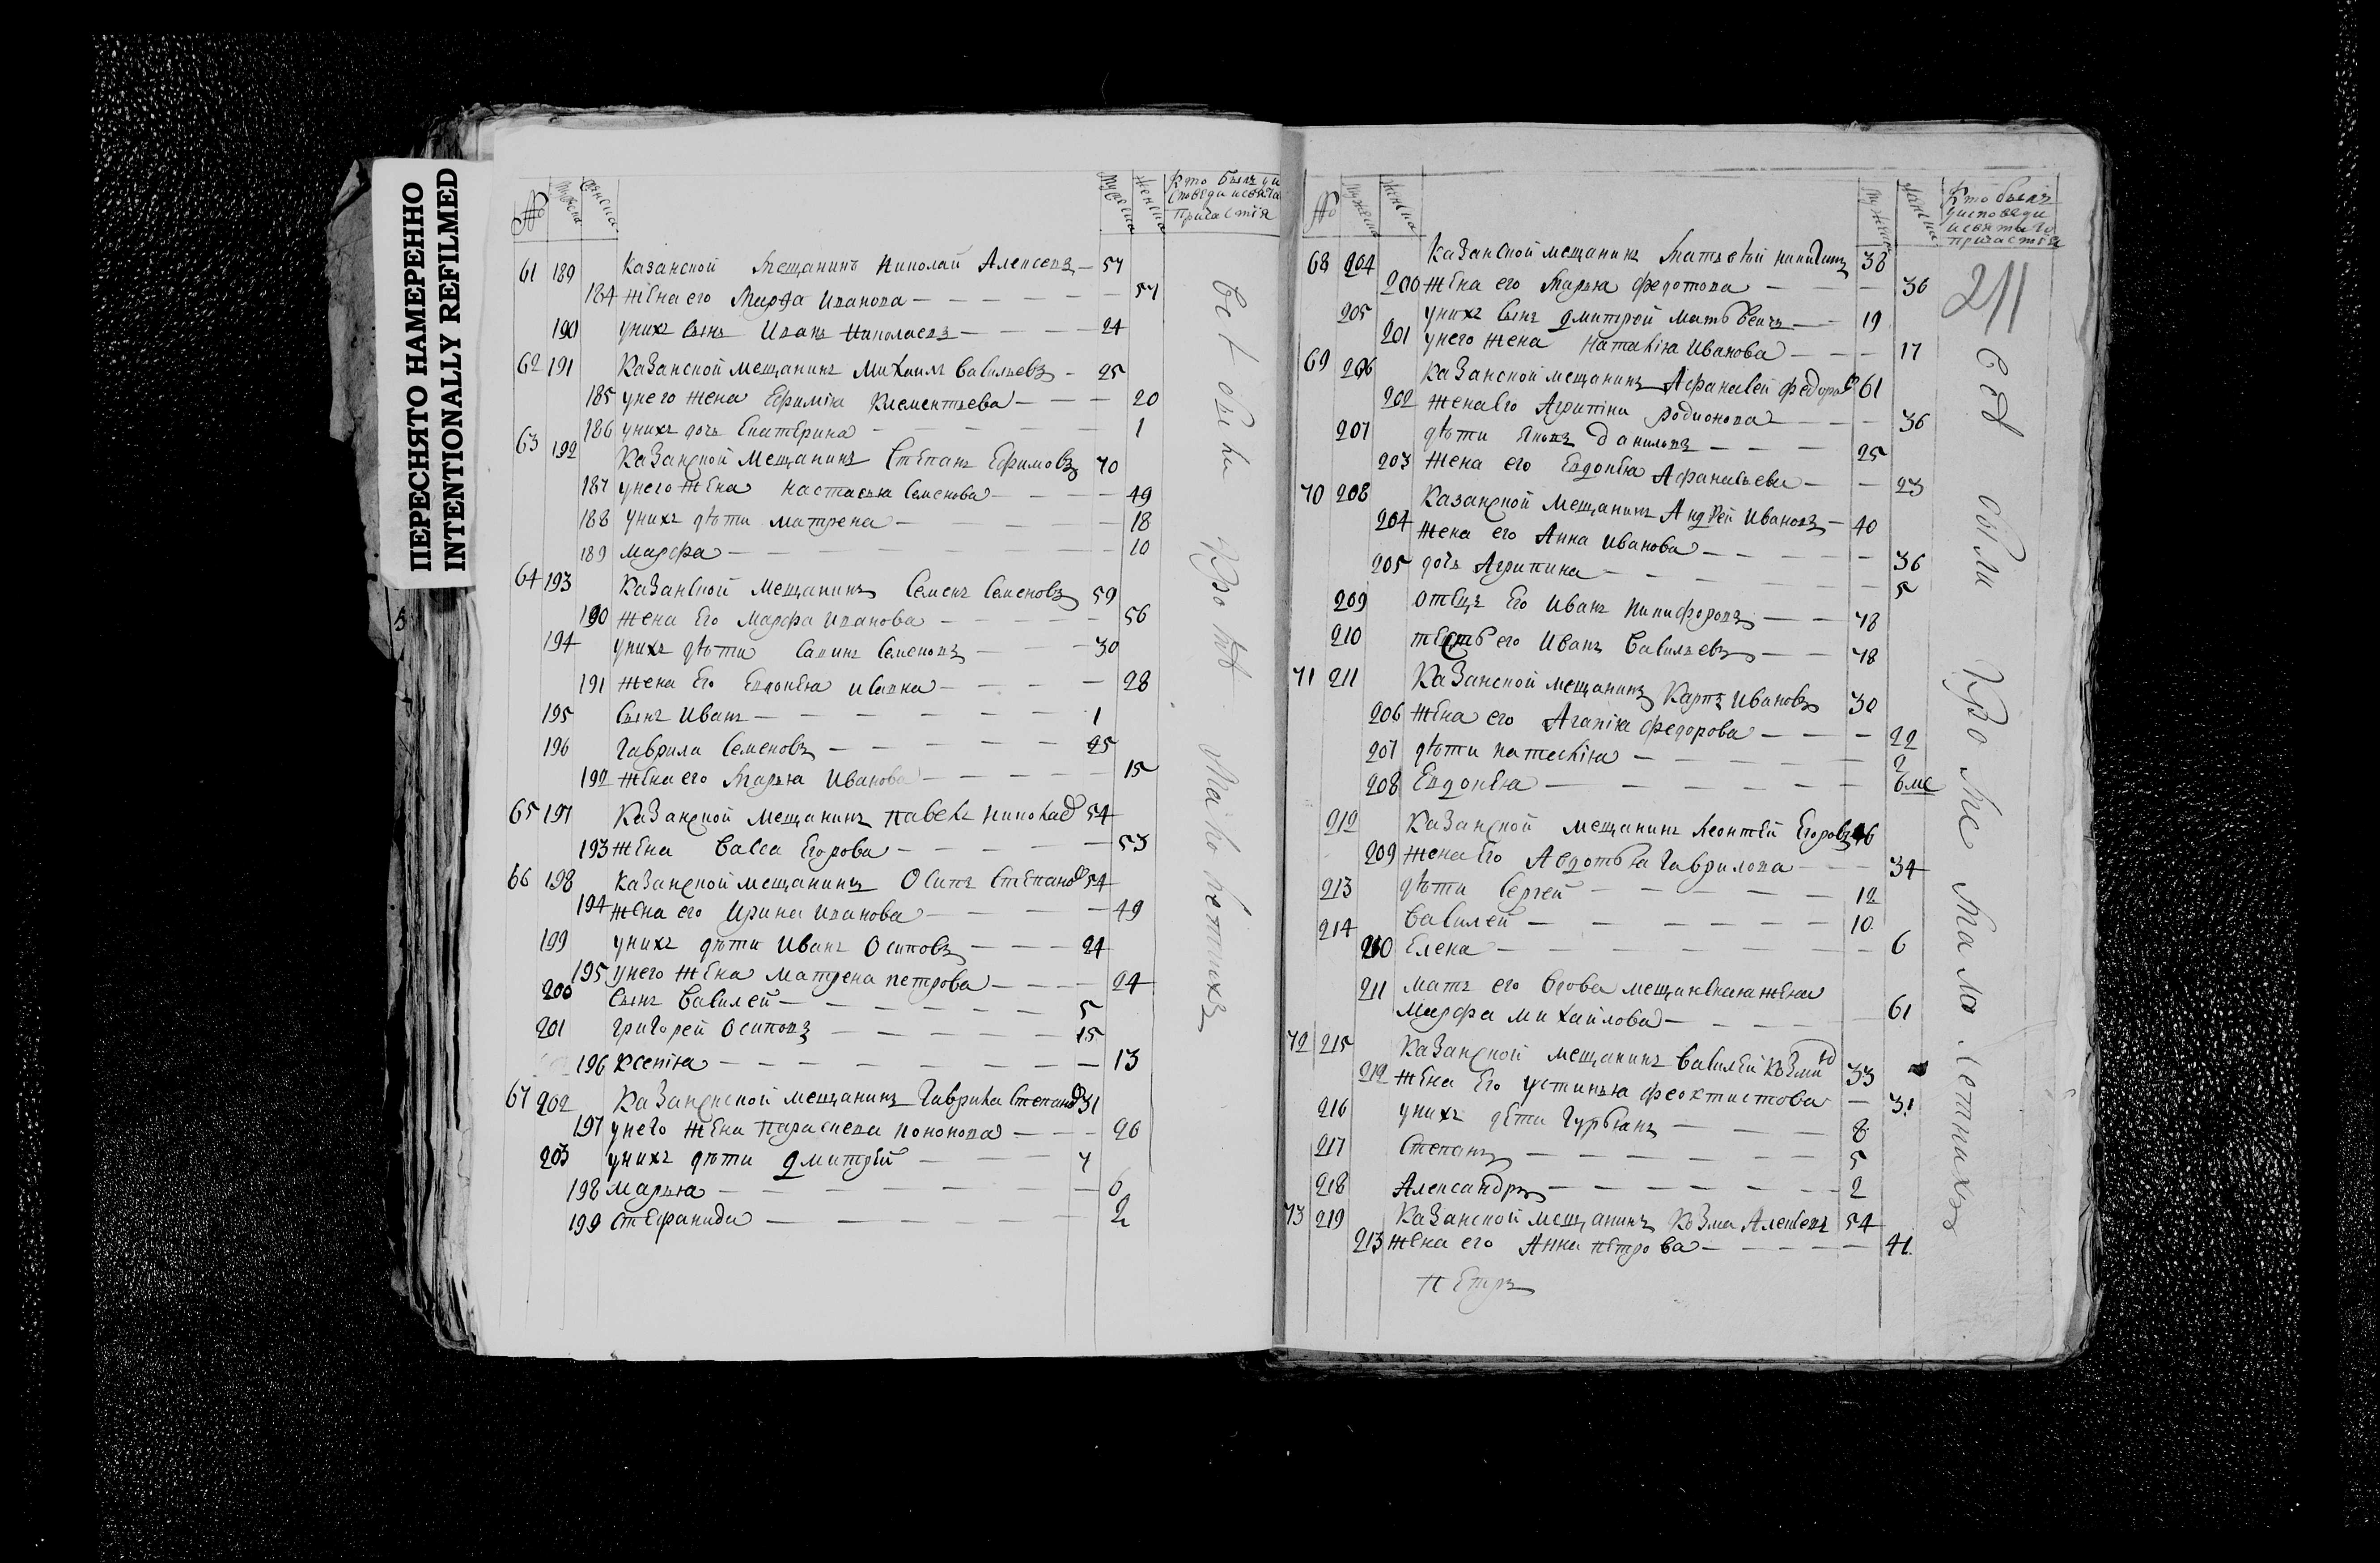 ПЕРЕСНЯТО НАМЕРЕННО
INTENTIONALLY REFILMED
№ мужеска женска мужеска женска Кто былъ уи
споведи и святаго
причастія
61 189 Казанской мещанинъ Николай Алексеевъ — 57
184 жена его Марфа Иванова — 57
190 у нихъ сынъ Иванъ Николаевъ — 24
62 191 Казанской мещанинъ Михаилъ Васильевъ — 25
185 у него жена Ефимія Клементьева — 20
186 у нихъ дочь Екатерина — 1
63 192 Казанской мещанинъ Степанъ Ефимовъ 70
187 у него жена Настасья Семенова — 49
188 у нихъ дѣти Матрена — 18
189 Марфа — 10
64 193 Казанской мещанинъ Семенъ Семеновъ 59
190 жена его Марфа Иванова — 56
194 у нихъ дѣти Савинъ Семеновъ — 30
191 жена его Евдокея — 28
195 сынъ Иванъ — 1
196 Гаврила Семеновъ — 25
192 жена его Марья Иванова — 15
65 197 Казанской мещанинъ Павелъ Николаев 54
193 жена Васса Егорова — 53
66 198 Казанской мещанинъ Осипъ Степанов 54
194 жена его Ирина Иванова — 49
199 у нихъ дѣти Иванъ Осиповъ — 24
195 у него жена Матрена Петрова — 24
200 сынъ Василей — 5
201 Григорей Осиповъ — 15
196 Ксенія — 13
67 202 Казанской мещанинъ Гаврила Степанов 31
197 у него жена Параскева Кононова — 26
203 у нихъ дѣти Дмитрей — 4
198 Марья — 6
199 Стефанида — 2
кроме малолетнихъ
№ мужеска женска мужеска женска Кто былъ
уисповеди
и святаго
причастія
68 204 Казанской мещанинъ Матвѣй Никитинъ 38
200 жена его Марья Федотова — 36
205 у нихъ сынъ Дмитрей Матвѣевъ — 19
201 у него жена Наталія Иванова — 17
69 206 Казанской мещанинъ Афанасей Федоров 61
202 жена его Агрипина Родионова — 36
207 дѣти Яковъ Данилов — 25
203 жена его Евдокея Афанасьева — 23
70 208 Казанской мещанинъ Андрей Ивановъ — 40
204 жена его Анна Иванова — 36
205 дочь Агрипина — 5
209 отецъ его Иванъ Никифоровъ — 78
210 тесть его Иванъ Васильевъ — 78
71 211 Казанской мещанинъ Карпъ Ивановъ 30
206 жена его Агапія Федорова — 22
207 дѣти Наталія — 2
208 Евдокея — 6 мс
212 Казанской мещанинъ Леонтей Егоровъ 46
209 жена его Авдотья Гаврилова — 34
213 дѣти Сергей — 12
214 Василей — 10
210 Елена — 6
211 мать его вдова мещанская жена
Марфа Михайлова — 61
72 215 Казанской мещанинъ Василей Козмин 33
212 жена его Устинья Феоктистова — 31
216 у нихъ дети Гурьянъ — 8
217 Степанъ — 5
218 Александръ — 2
73 219 Казанской мещанинъ Козма Алексевъ 54
213 жена его Анна Петрова — 41
Петръ
211
были кроме малолетнихъ